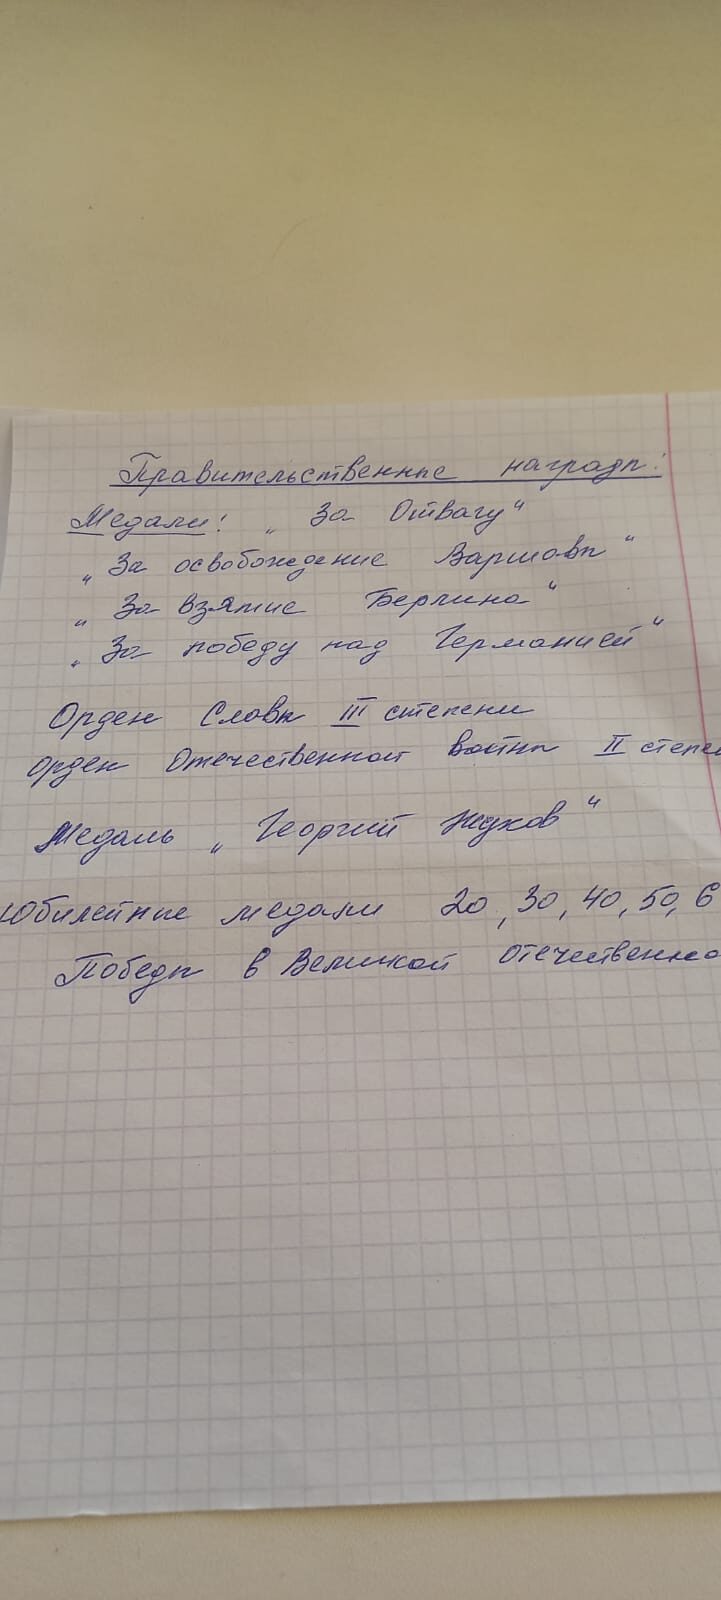 Правительственные награды:
Медали: „За Отвагу“
„За освобождение Варшавы“
„За взятие Берлина“
„За победу над Германией“
Орден Славы III степени
Орден Отечественной войны II степен
Медаль „Георгий Жуков“
Юбилейные медали 20, 30, 40, 50, 6
Победы в Великой Отечественно